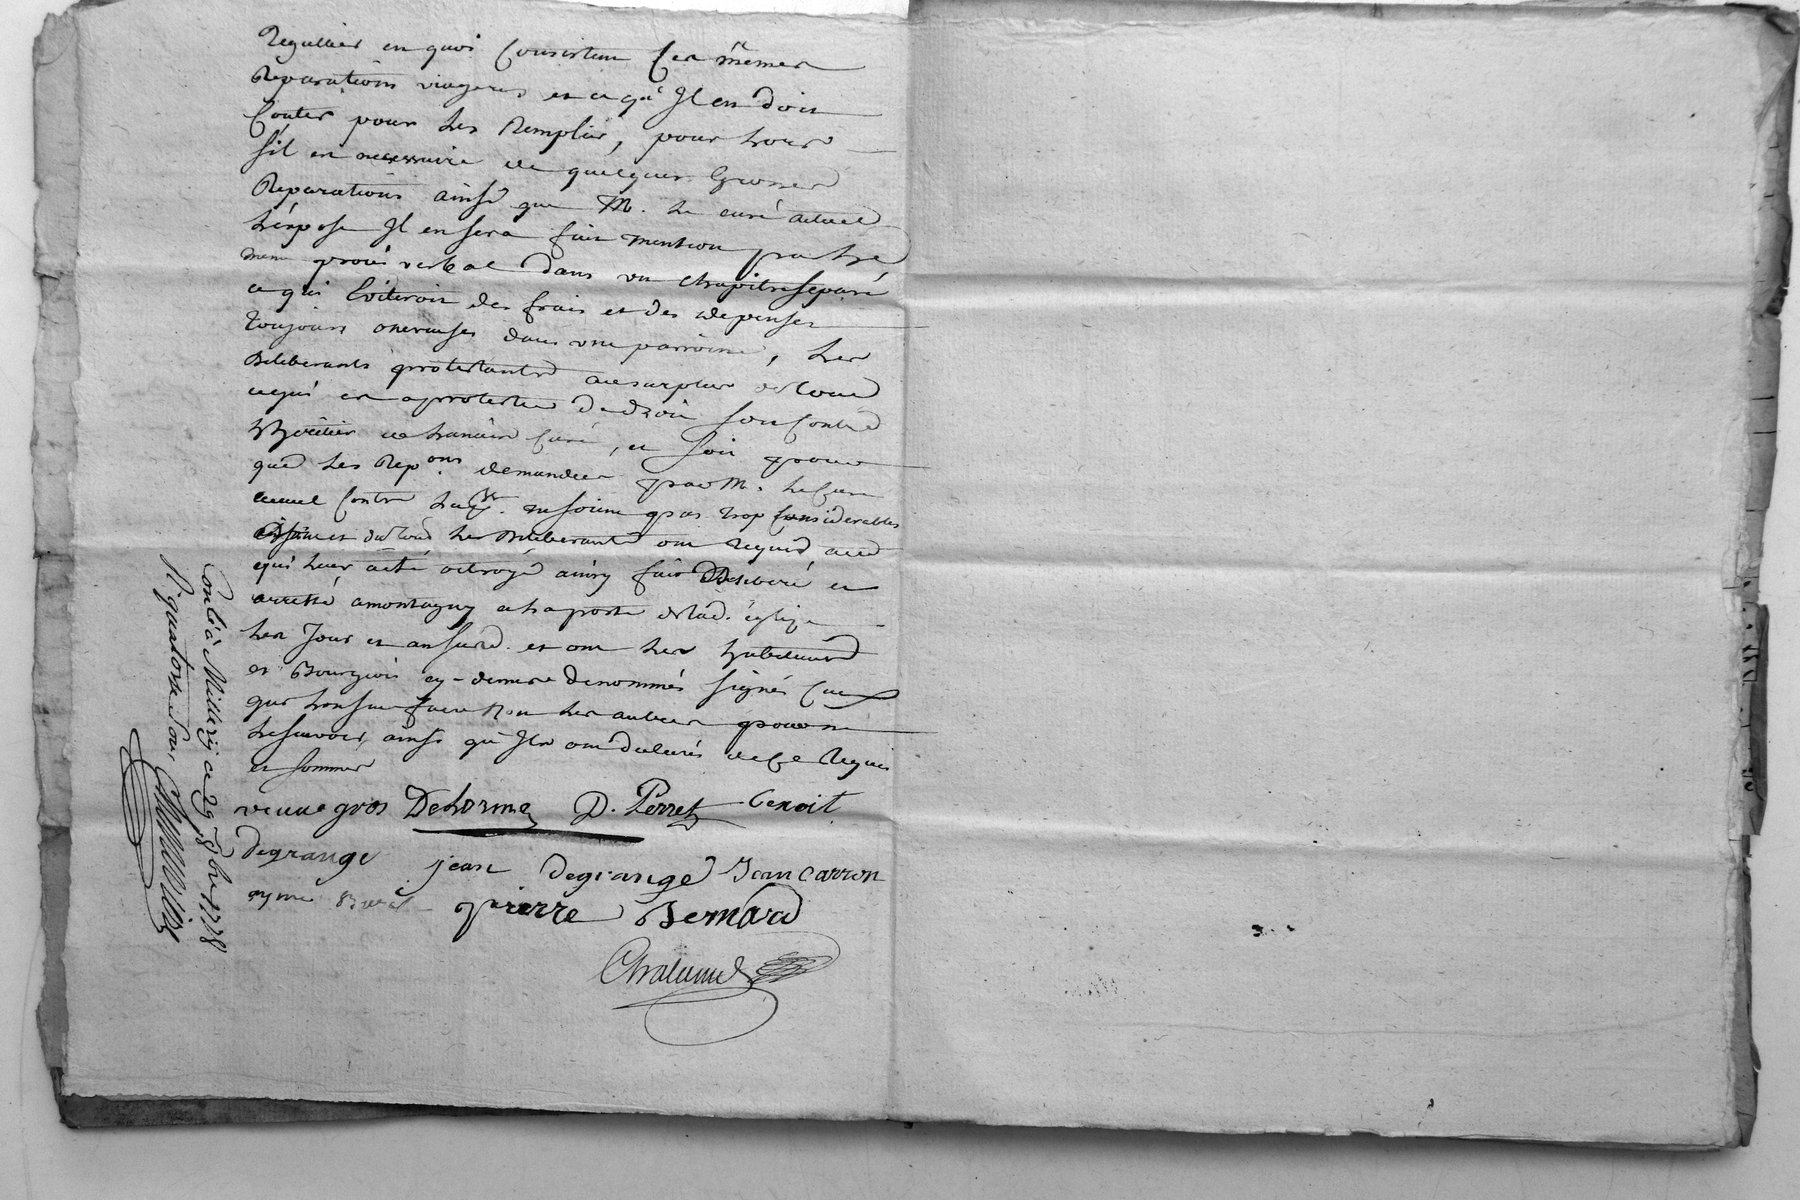 Regullier en quoi Consistent Ces mêmes
Reparations viageres et ce qu'Il en doit
Couter pour Les Remplir, pour tout
s'il en necessaire de quelques Grosses
Reparations ainsi que M. Le curé actuel
L'expose Il en sera fait mention par Le
meme procès verbal dans un chapitre separé
ce qui Eviteroit des frais et des depenses
Toujours onereuses dans une parroisse, Les
Deliberants protestants au surplus de tout
ce qui en a protester de droit soit Contre
L'heritier de L'ancien Curé, et soit pour
que Les Rep.ons demandées par M. Le Curé
actuel Contre Lad. ne soient pas trop Considerables
et du tout Les Deliberants ont Requis acte
qui Leur a été octroyé ainsy fait Deliberé et
arretté a montagny a La porte de Lad. église
Les Jour et an susd. et ont Les habitants
et Bourgeois cy-devant denommés signés Ceux
qui L'ont su faire Non Les autres pour ne
Le savoir, ainsi qu'Ils ont declarés de Ce Requis
et sommés
veuve gros Delorme P. Perret Benoit
Degrange jean Degrange Jean Carron
ayme pierre Bernard
Chalumel
Conlé à Millery ce 29 7bre 1778
R quatorze sous,